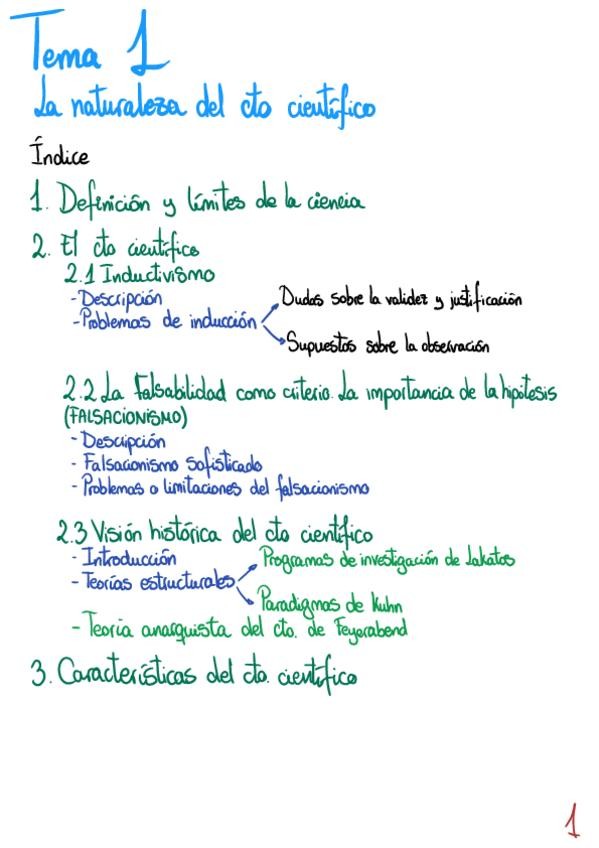 Tema 1
La naturaleza del cto científico
Índice
1. Definición y límites de la ciencia
2. El cto científico
2.1 Inductivismo
- Descripción
- Problemas de inducción
Dudas sobre la validez y justificación
Supuestos sobre la observación
2.2 La falsabilidad como criterio. La importancia de la hipótesis
(FALSACIONISMO)
- Descripción
- Falsacionismo sofisticado
- Problemas o limitaciones del falsacionismo
2.3 Visión histórica del cto científico
- Introducción
- Teorías estructurales
Programas de investigación de Lakatos
Paradigmas de Kuhn
- Teoría anarquista del cto. de Feyerabend
3. Características del cto. científico
1